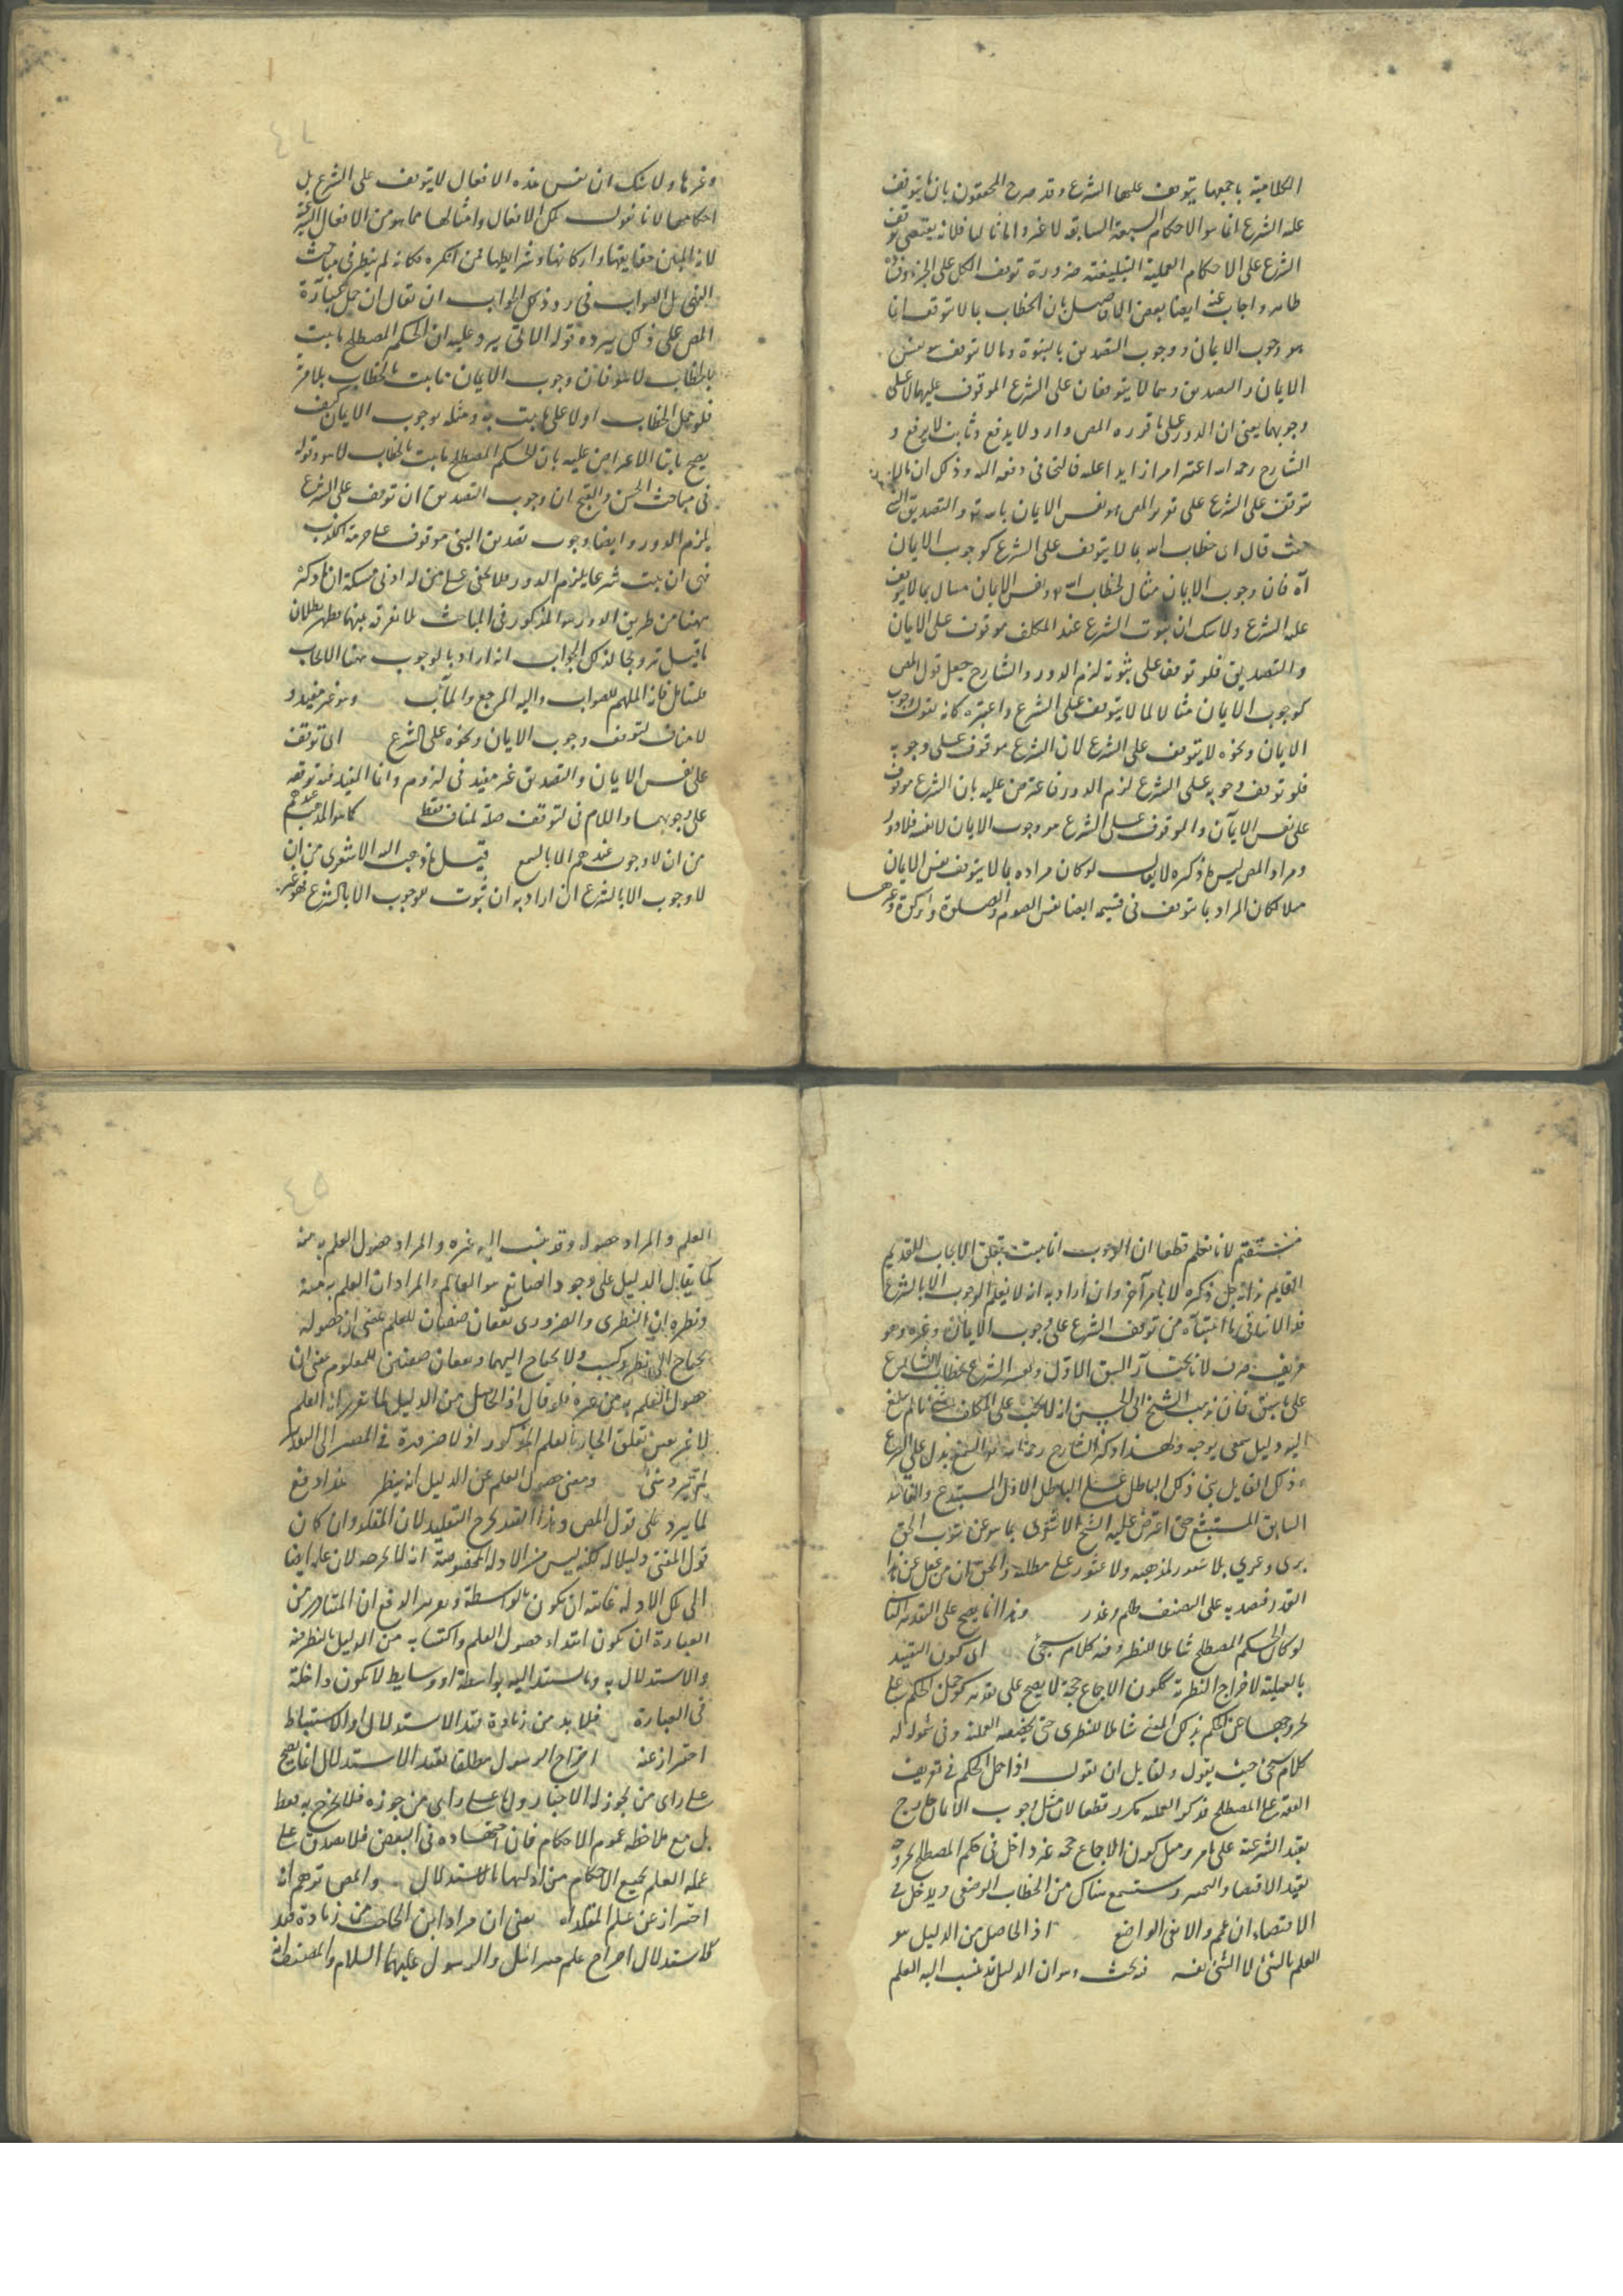 الكلامية باجمعها يتوقف عليها الشرع وقد صرح المحققون بان ما يتوقف
عليه الشرع انما هو الاحكام السبعة السابقة لا غير واما ثانيا فلانه يقتضى توقف
الشرع على الاحكام العملية ضرورة توقف الكل على الجزء
ظاهر واجاب عنه ايضا بعض الافاضل بان الخطاب بما لا يتوقف انما
هو وجوب الايمان ووجوب التصديق بالنبوة وما لا يتوقف هو نفس
الايمان والتصديق وهما لا يتوقفان على الشرع الموقوف عليهما لا على
وجوبهما يعنى ان الدور على ما قرره المص وارد لا يدفع وثابت لا يرفع و
الشارح رحمه الله
توقف على الشرع على تقرير المص هو نفس الايمان بالله والتصديق
حيث قال ان خطاب الله بما لا يتوقف على الشرع كوجوب الايمان
آه فان وجوب الايمان مثال لخطاب الله ونفس الايمان مثال بما لا يتوقف
عليه الشرع ولا شك ان ثبوت الشرع عند المكلف موقوف على الايمان
والتصديق فلو توقفا على ثبوته لزم الدور والشارح جعل قول المص
كوجوب الايمان مثالا لما لا يتوقف على الشرع واعتبره كانه يقول وجوب
الايمان ونحوه لا يتوقف على الشرع لان الشرع موقوف على وجوبه
فلو توقف وجوبه على الشرع لزم الدور فاعترض عليه بان الشرع موقوف
على نفس الايمان والموقوف على الشرع هو وجوب الايمان لا نفسه فلا دور
ومراد المص ليس ما ذكره لا يقال لو كان مراده بما لا يتوقف نفس الايمان
مثلا لكان المراد بما يتوقف في قسيمه ايضا نفس الصوم والصلوة والزكوة وغيرها
وغيرها ولا شك ان نفس هذه الافعال لا يتوقف على الشرع بل
احكامها لانا نقول تلك الافعال وامثالها مما هو من الافعال الشرعية
لانه المبين حقايقها واركانها وشرايطها فمن انكره فكانه لم ينظر في مباحث
النهى بل الصواب في رد ذلك الجواب ان يقال ان حمل عبارة
المص على ذلك يرده قوله الاتى يرد عليه ان الحكم المصطلح ما ثبت
بالخطاب لا هو فان وجوب الايمان ثابت بالخطاب بلا مرية
فلو حمل الخطاب اولا على ما ثبت به ومثله بوجوب الايمان كيف
يصح ثانيا الاعتراض عليه بان الحكم المصطلح ما ثبت بالخطاب لا هو وقوله
في مباحث الحسن والقبح ان وجوب التصديق ان توقف على الشرع
يلزم الدور وايضا وجوب تصديق النبى موقوف على حرمة الكذب
فهى ان ثبت شرعا يلزم الدور فلا يخفى على من له ادنى مسكة ان ما ذكره
ههنا من طريق الدور هو المذكور في المباحث لا تفرقه بينهما فظهر بطلان
ما قيل ترويجا لذلك الجواب انه اراد بالوجوب ههنا الايجاب
فليتأمل فانه الملهم للصواب واليه المرجع والمآب وهو غير مفيد و
لا مناف لتوقف وجوب الايمان ونحوه على الشرع اى توقف
على نفس الايمان والتصديق غير مفيد في لزومه وانما المفيد فيه توقفه
على وجوبهما واللام في لتوقف صلة لمناف فقط كما هو المذهب عندهم
من ان لا وجوب عندهم الا بالسمع قيل ما ذهب اليه الاشعرى من ان
لا وجوب الا بالشرع ان اراد به ان ثبوت الوجوب الا بالشرع فهو غير
مستقيم لانا نعلم قطعا ان الوجوب انما يثبت بتعلق الايجاب القديم
القايم بذاته جل ذكره لا بامر آخر وان اراد به انه لا يعلم الوجوب الا بالشرع
فهو لا ينافى ما اثبتناه من توقف الشرع على وجوب الايمان وغيره وهو
مزيف لانا نختار الشق الاول
على ما سبق فان مذهب الشيخ ابى الحسن انه لا يجب على المكلف شئ ما لم يبلغ
اليه دليل سمعى يوجبه ولهذا ذكر الشارح رحمه الله السمع بدل الشرع
وذلك القايل بنى ذلك الباطل على الباطل الاول المستبدع والفاسد
السابق المستبشع حتى اعترض على الشيخ الاشعرى بما هو عن شوب الحق
برى وعرى بلا شعور لمذهبه ولا عثور على مطلبه والحق ان من غفل عن هذا
القدر فتصديه على التصنيف ظلم وغدر وهذا انما يصح على التقدير الثانى
لو كان الحكم المصطلح شاملا للنظر وفيه كلام سيجئ اى كون التقييد
بالعملية لاخراج النظرية ككون الاجماع حجة لا يصح على تقدير حمل الحكم على
لخروجها عن الحكم بذلك المعنى شاملا للنظرى حتى يخصصه العملية وفى شموله له
كلام سيجئ حيث يقول ولقايل ان يقول اذا حمل الحكم في تعريف
الفقه على المصطلح فذكر العملية مكرر قطعا لان مثل وجوب الايمان خارج
بقيد الشرعية على ما مر ومثل كون الاجماع حجة غير داخل في الحكم المصطلح لخروجه
بقيد الاقتضاء والتخيير وستسمع هناك من الخطاب الوضعى ويدخل في
الاقتضاء ان عمم والا ففى الواضع اذ الحاصل من الدليل هو
العلم بالشئ لا الشئ نفسه فيه بحث وهو ان الدليل قد ينسب اليه العلم
العلم والمراد حصوله وقد ينسب اليه غيره والمراد حصول العلم به منه
كما يقال الدليل على وجود الصانع هو العالم والمراد ان العلم به منه
ونظيره ان النظرى والضرورى يقعان صفتان للعلم بمعنى ان حصوله
يحتاج الى نظر وكسب ولا يحتاج اليهما ويقعان صفتين للمعلوم بمعنى ان
حصول العلم به من غيره فلو قال اذ الحاصل من الدليل
لا غير يعين تعلق الجار بالعلم المذكور اذ لا ضرورة في المصير الى العدول
لم يرد شئ ومعنى حصول العلم عن الدليل انه ينظر هذا دفع
لما يرد على قول المص وهذا القيد يخرج التقليد لان المقلد وان كان
قول المفتى دليلا له لكنه ليس من الادلة المخصوصة انه لا يخرجه لان علمه ايضا
الى تلك الادلة غايته ان يكون بالواسطة وتقرير الدفع ان المتبادر من
العبارة ان يكون ابتداء حصول العلم واكتسابه من الدليل بالنظر فيه
والاستدلال به وما يستند اليه بواسطة او وسايط لا يكون داخلة
في العبارة فلا بد من زيادة قيد الاستدلال او الاستنباط
احتراز عنه اخراج الرسول مطلقا بقيد الاستدلال انما يصح
على راى من لم يجوز له الاجتهاد واما على راى من جوزه فلا يخرج به فقط
بل مع ملاحظة عموم الاحكام فان اجتهاده في البعض فلا يصدق على
علمه العلم بجميع الاحكام من ادلتها بالاستدلال والمص توهم انه
احتراز عن علم المقلد اه يعنى ان مراد ابن الحاجب من زيادة قيد
الاستدلال اخراج علم جبرائيل والرسول عليهما السلام والمصنف ظن انه